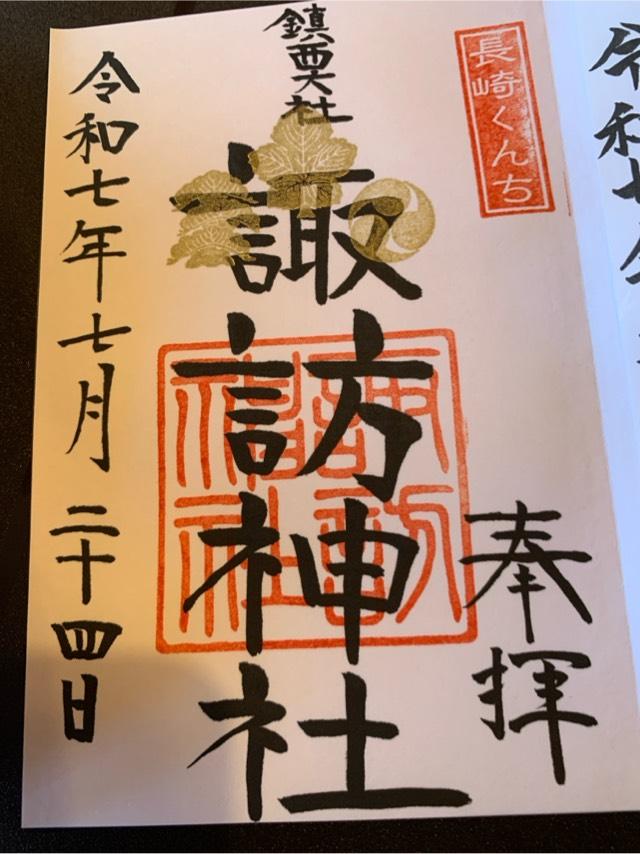 長崎くんち
奉拝
鎮西大社
諏訪神社
諏訪神社
令和七年七月二十四日
令和七年